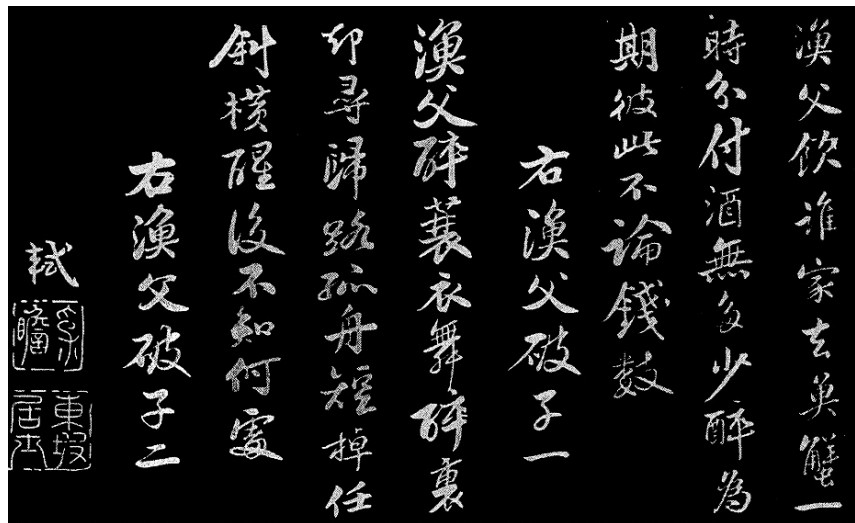 漁父飲誰家去魚蟹一
時分付酒無多少醉為
期彼此不論錢數
右漁父破子一
漁父醉蓑衣舞醉裏
却尋歸路孤舟短棹任
斜橫醒後不知何處
右漁父破子二
軾
子瞻
東坡居士